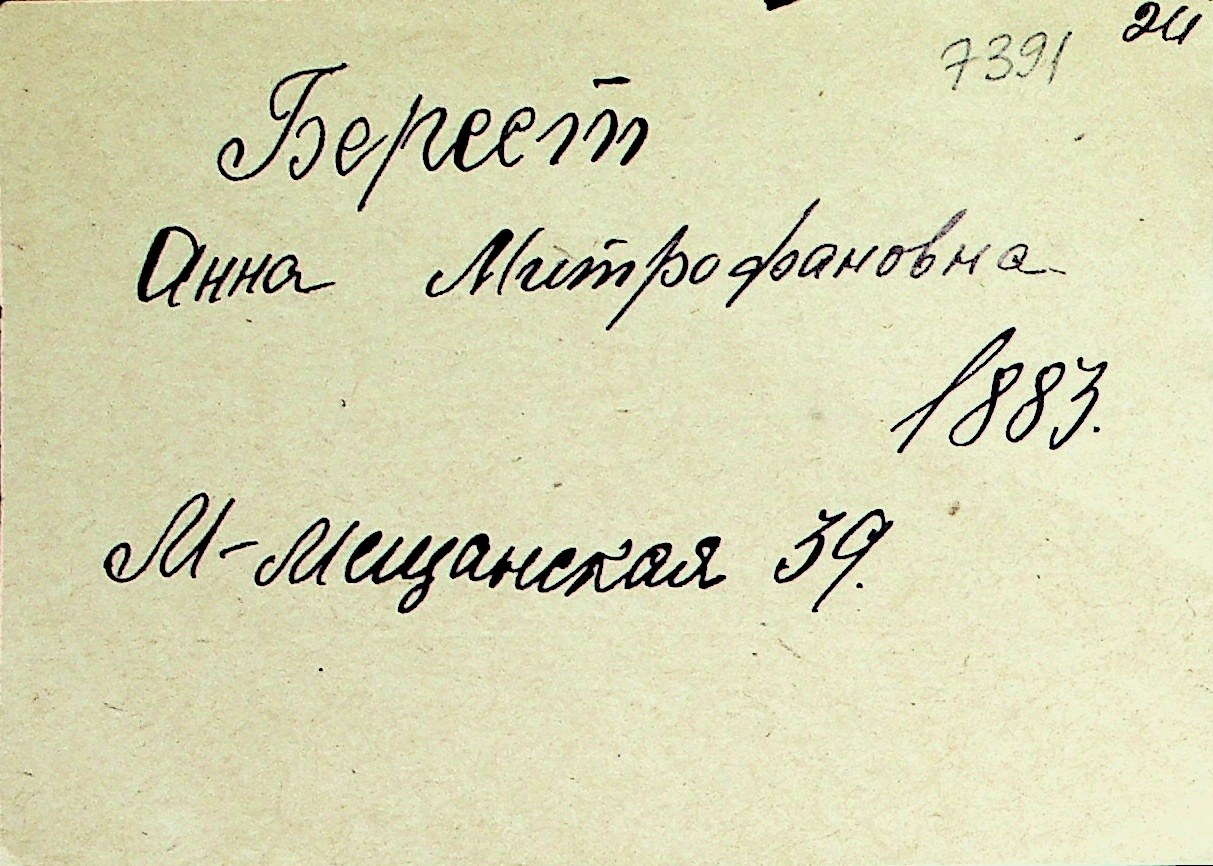 7391
Берест
Анна Митрофановна
1883.
М-Мещанская 39.